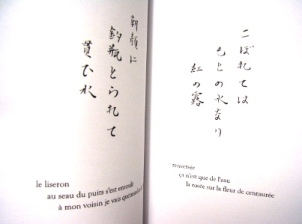 朝顔に
釣瓶とられて
貰ひ水
le liseron
au seau du puits s'est enroulé
à mon voisin je vais
こぼれては
もとの水なり
紅の露
renversée
ça n'est que de l'eau
la rosée sur la fleur de centaurée